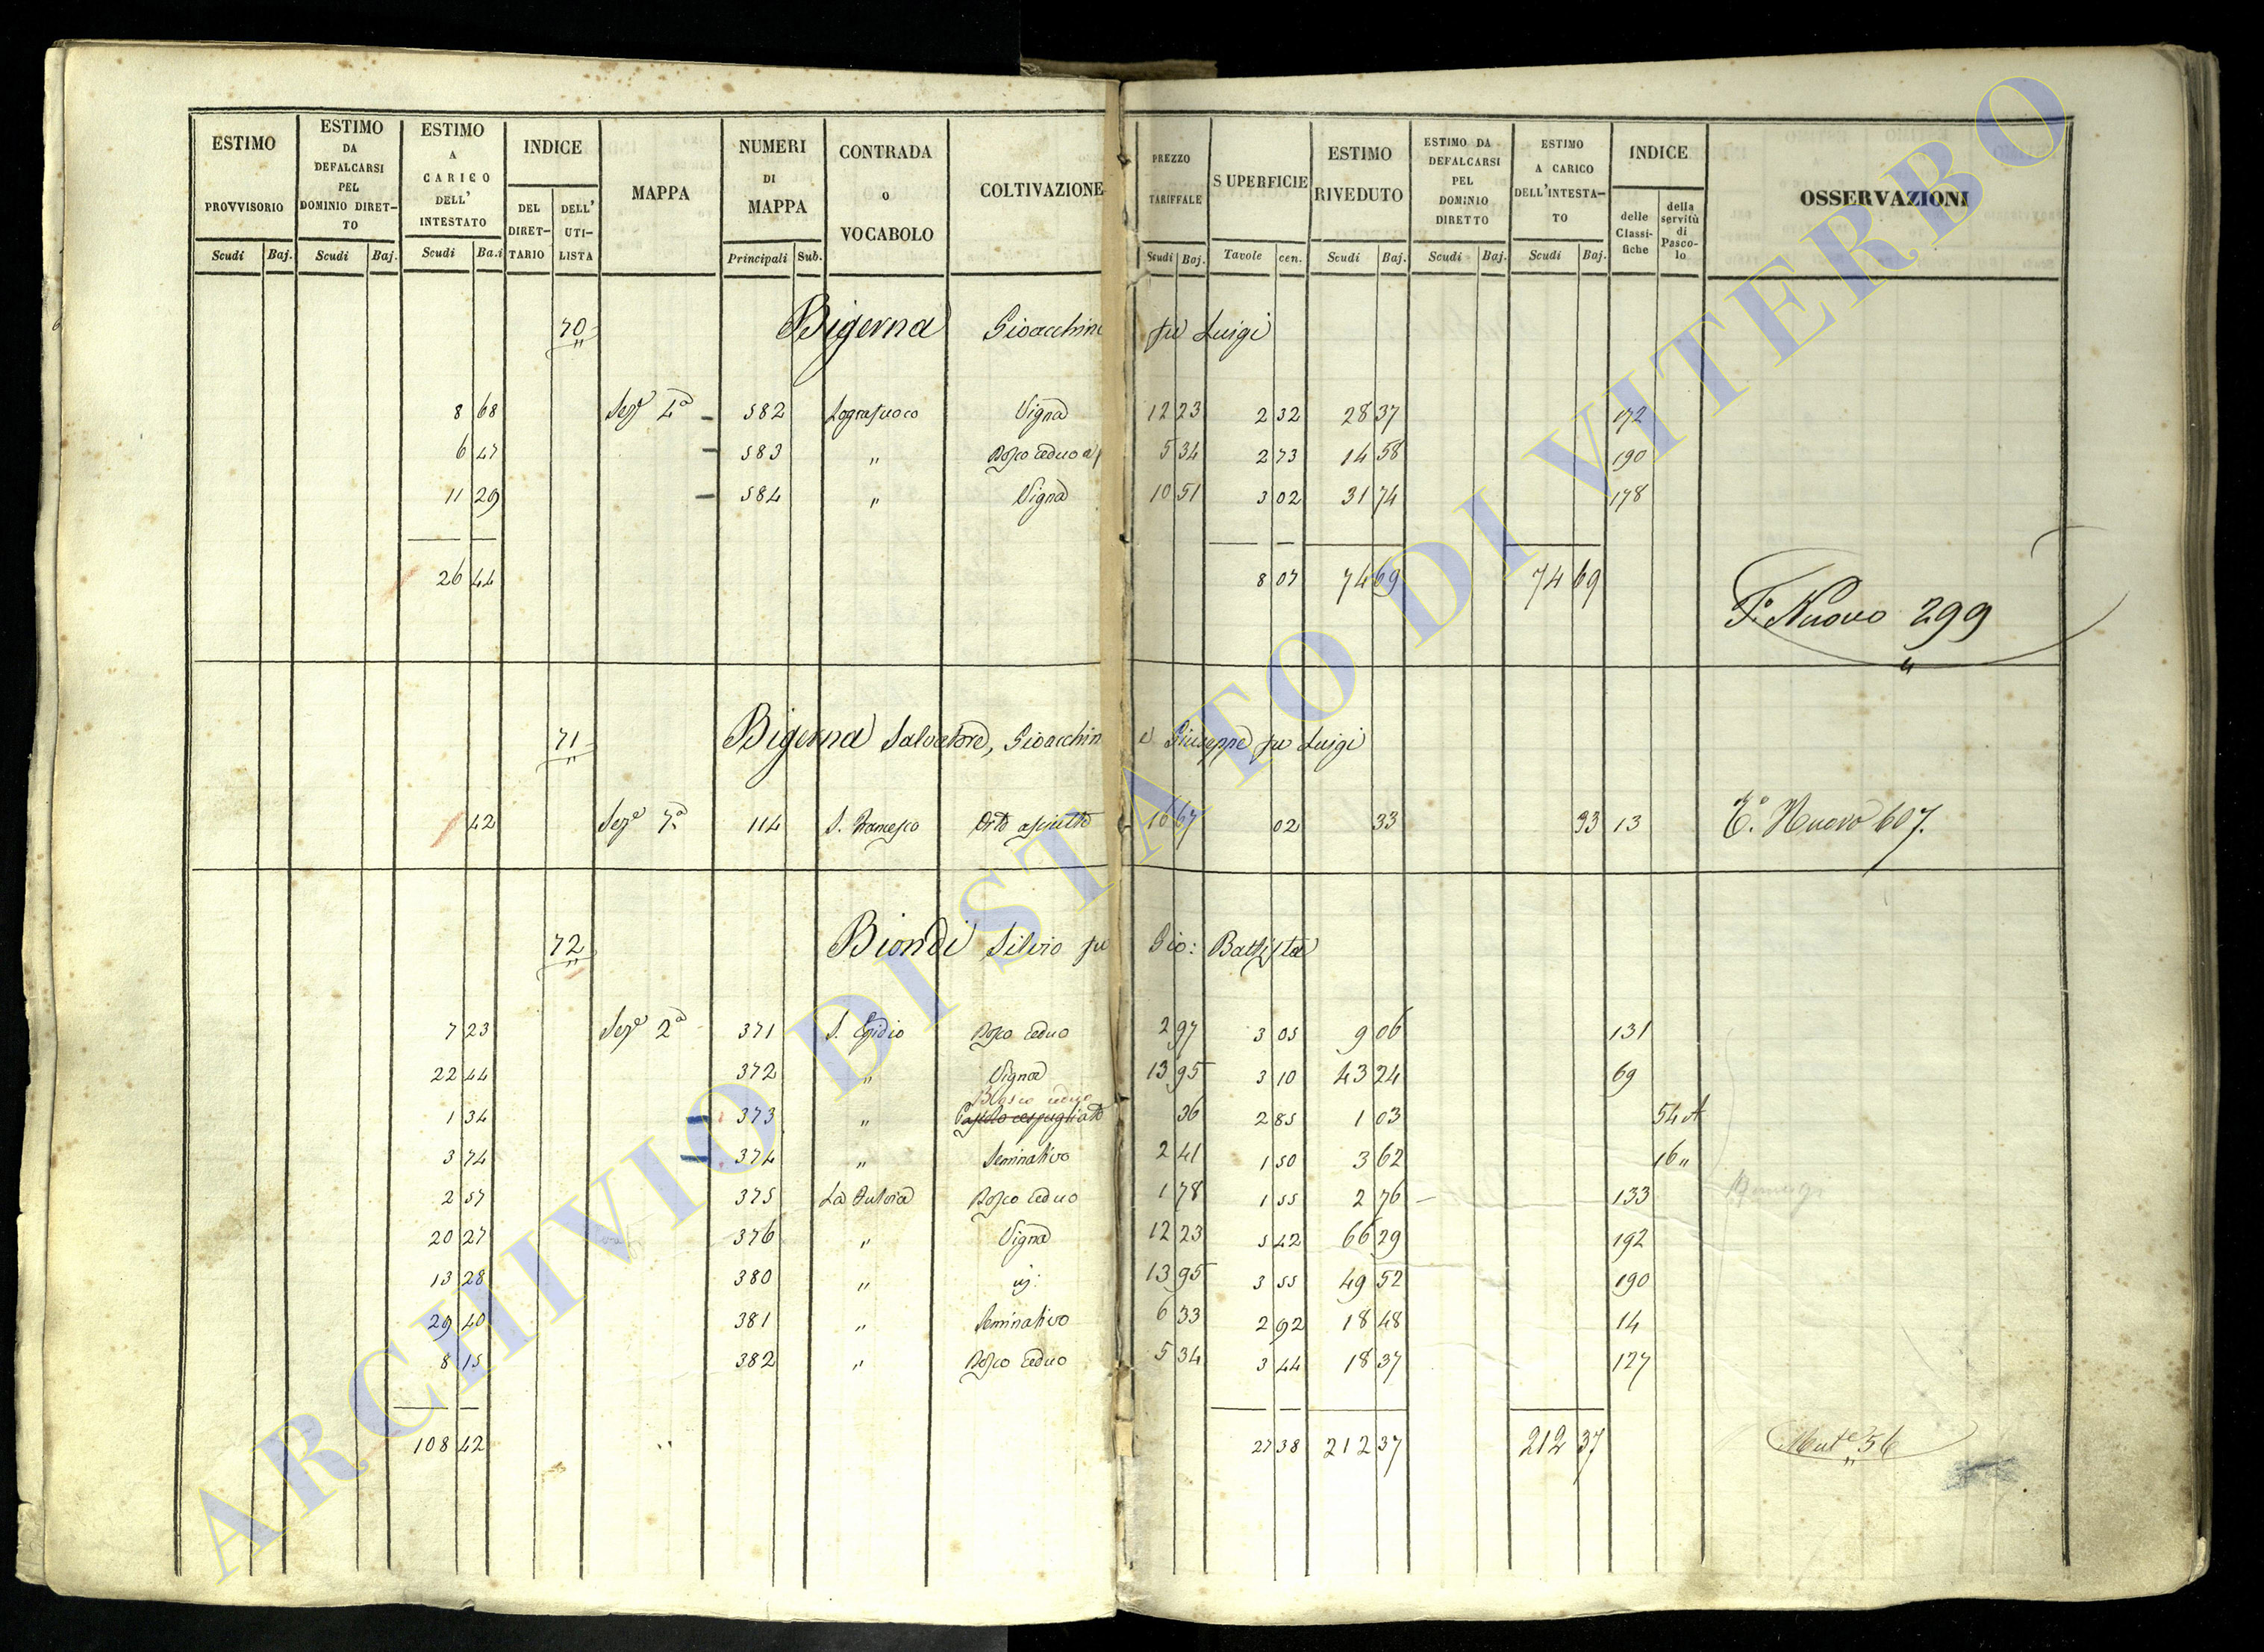 ESTIMO PROVVISORIO Scudi Baj.
ESTIMO DA DEFALCARSI PEL DOMINIO DIRET-TO Scudi Baj.
ESTIMO A CARICO DELL' INTESTATO Scudi Ba.i
INDICE DEL DIRET-TARIO DELL' UTI-LISTA
MAPPA
NUMERI DI MAPPA Principali Sub.
CONTRADA O VOCABOLO
COLTIVAZIONE
PREZZO TARIFFALE Scudi Baj.
SUPERFICIE Tavole cen.
ESTIMO RIVEDUTO Scudi Baj.
ESTIMO DA DEFALCARSI PEL DOMINIO DIRETTO Scudi Baj.
ESTIMO A CARICO DELL'INTESTA-TO Scudi Baj.
INDICE delle Classi-fiche della servitù di Pasco-lo
OSSERVAZIONI
70 Bigerna Gioacchino fu Luigi
8 68 Sez.e 4a 582 Lografuoco Vigna 12 23 2 32 28 37 172
6 47 583 " Bosco ceduo 5 34 2 73 14 58 190
11 29 584 " Vigna 10 51 3 02 31 74 178
26 44 8 07 74 69 74 69
T.o Nuovo 299
71 Bigerna Salvatore, Gioacchin e Giuseppe fu Luigi
42 Sez.e 7a 114 S. Francesco Orto asciutto 16 67 02 33 33 13 T.o Nuovo 607.
72 Biondi Silvio fu Gio: Battista
7 23 Sez.e 2a 371 S. Egidio Bosco ceduo 2 97 3 05 9 06 131
22 44 372 " Vigna 13 95 3 10 43 24 69
Bosco ceduo
1 34 373 " Pascolo cespugliato 36 2 85 1 03 54 A
3 74 374 " Seminativo 2 41 1 50 3 62 16 "
2 57 375 Bosco ceduo 1 78 1 55 2 76 133
20 27 376 " Vigna 12 23 5 42 66 29 192
13 28 380 " 13 95 3 55 49 52 190
29 40 381 " Seminativo 6 33 2 92 18 48 14
8 15 382 " Bosco ceduo 5 34 3 44 18 37 127
108 42 27 38 212 37 212 37
56
ARCHIVIO DI STATO DI VITERBO